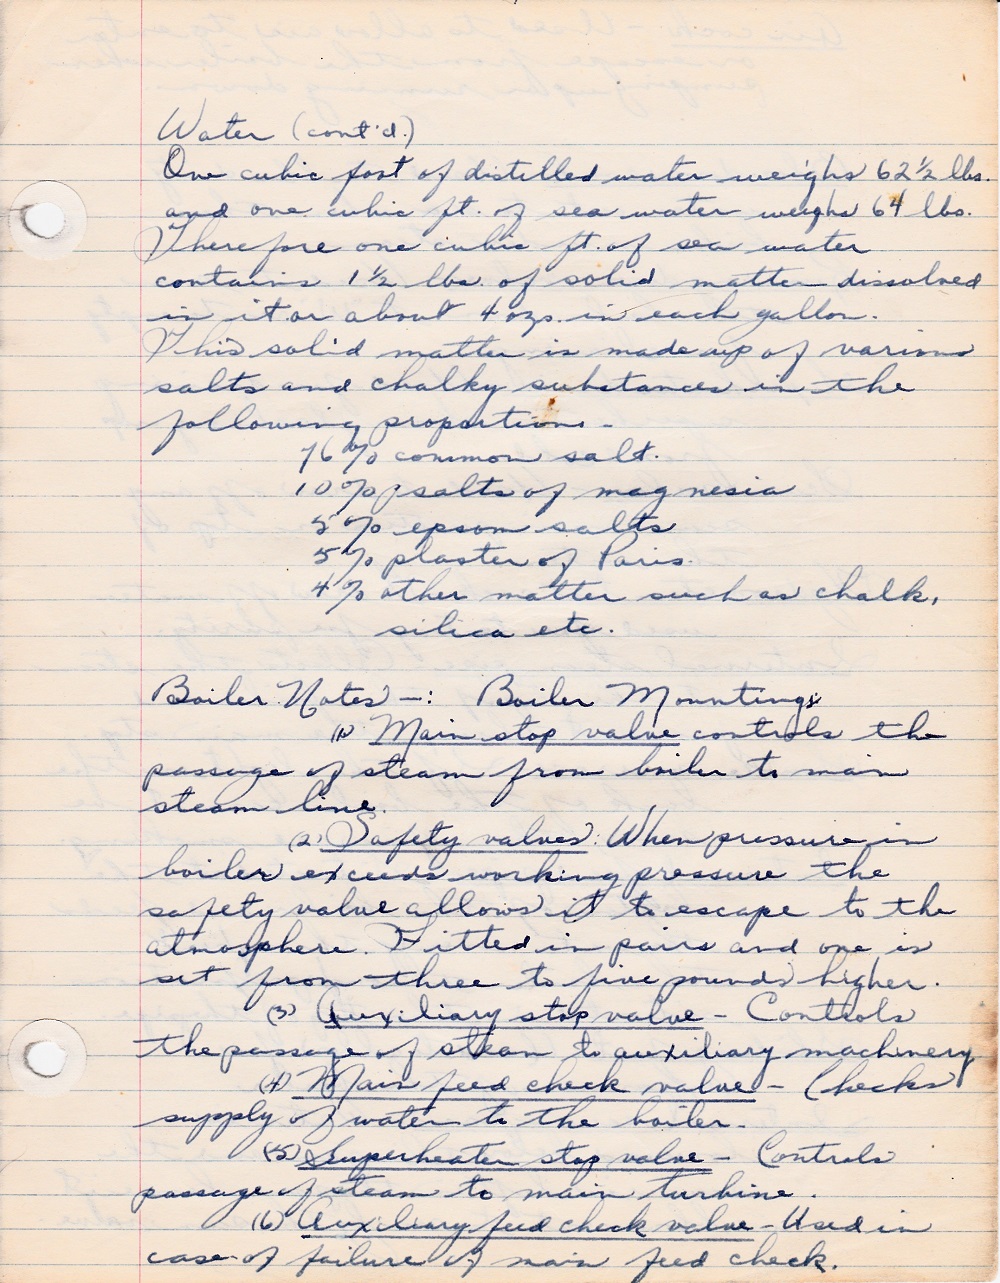 Water (cont'd.)
One cubic foot of distilled water weighs 62 1/2 lbs.
and one cubic ft. of sea water weighs 64 lbs.
Therefore one cubic ft. of sea water
contains 1 1/2 lbs. of solid matter dissolved
in it or about 4 ozs. in each gallon.
This solid matter is made up of various
salts and chalky substances in the
following proportions -
76% common salt.
10% salts of magnesia
5% epsom salts
5% plaster of Paris.
4% other matter such as chalk,
silica etc.
Boiler Notes -: Boiler Mountings
(1) Main stop valve controls the
passage of steam from boiler to main
steam line.
(2) Safety valves: When pressure in
boiler exceeds working pressure the
safety valve allows it to escape to the
atmosphere. Fitted in pairs and one is
set from three to five pounds higher.
(3) Auxiliary stop valve - Controls
the passage of steam to auxiliary machinery
(4) Main feed check valve - Checks
supply of water to the boiler.
(5) Superheater stop valve - Controls
passage of steam to main turbine.
(6) Auxiliary feed check valve - Used in
case of failure of main feed check.